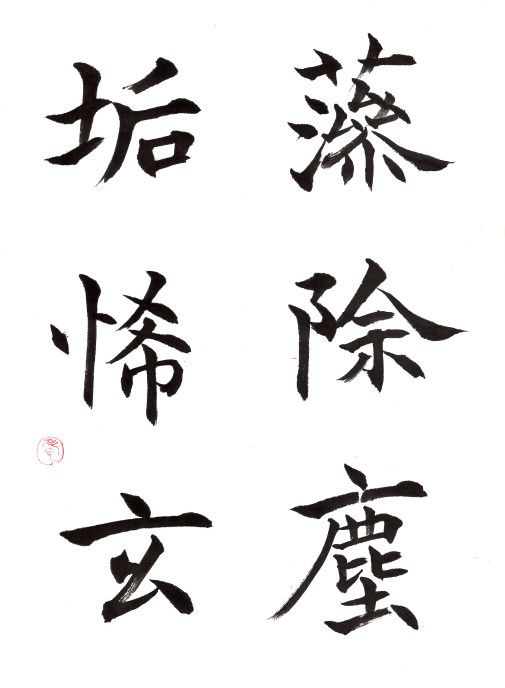 除塵
垢悕玄